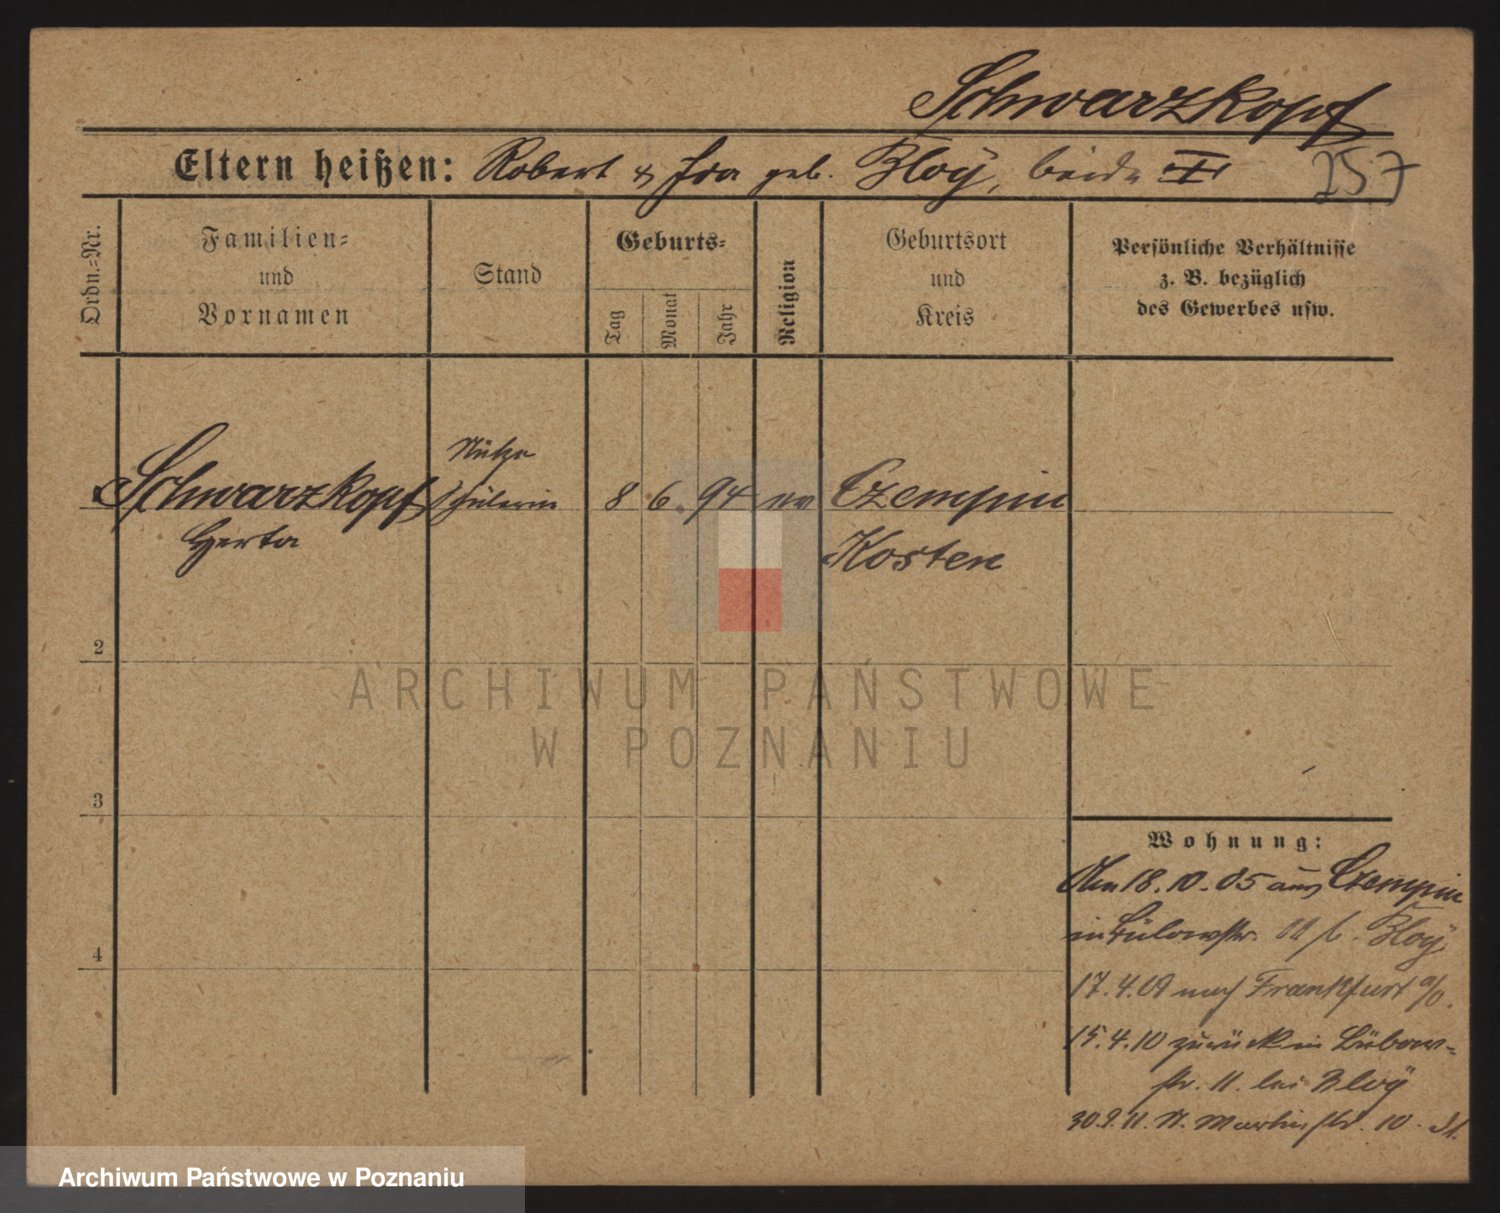 Schwarzkopf
Eltern heißen: Robert & Ida geb. Bloÿ, beide
257
Ordn.-Nr.
Familien-
und
Vornamen
Stand
Geburts-
Tag
Monat
Jahr
Religion
Geburtsort
und
Kreis
Persönliche Verhältnisse
z. B. bezüglich
des Gewerbes usw.
Stütze
Schwarzkopf Schülerin 8 6. 94 ev Czempin
Herta Kosten
2
3
4
Wohnung:
Am 18.10.05 aus Czempin
in Bülowstr. 11 b. Bloÿ
17.4.09 nach Frankfurt a/O.
15.4.10 zurück in Bülow-
str. 11. bei Bloÿ
30.9.11. St. Martinstr. 10.
ARCHIWUM PAŃSTWOWE
W POZNANIU
Archiwum Państwowe w Poznaniu